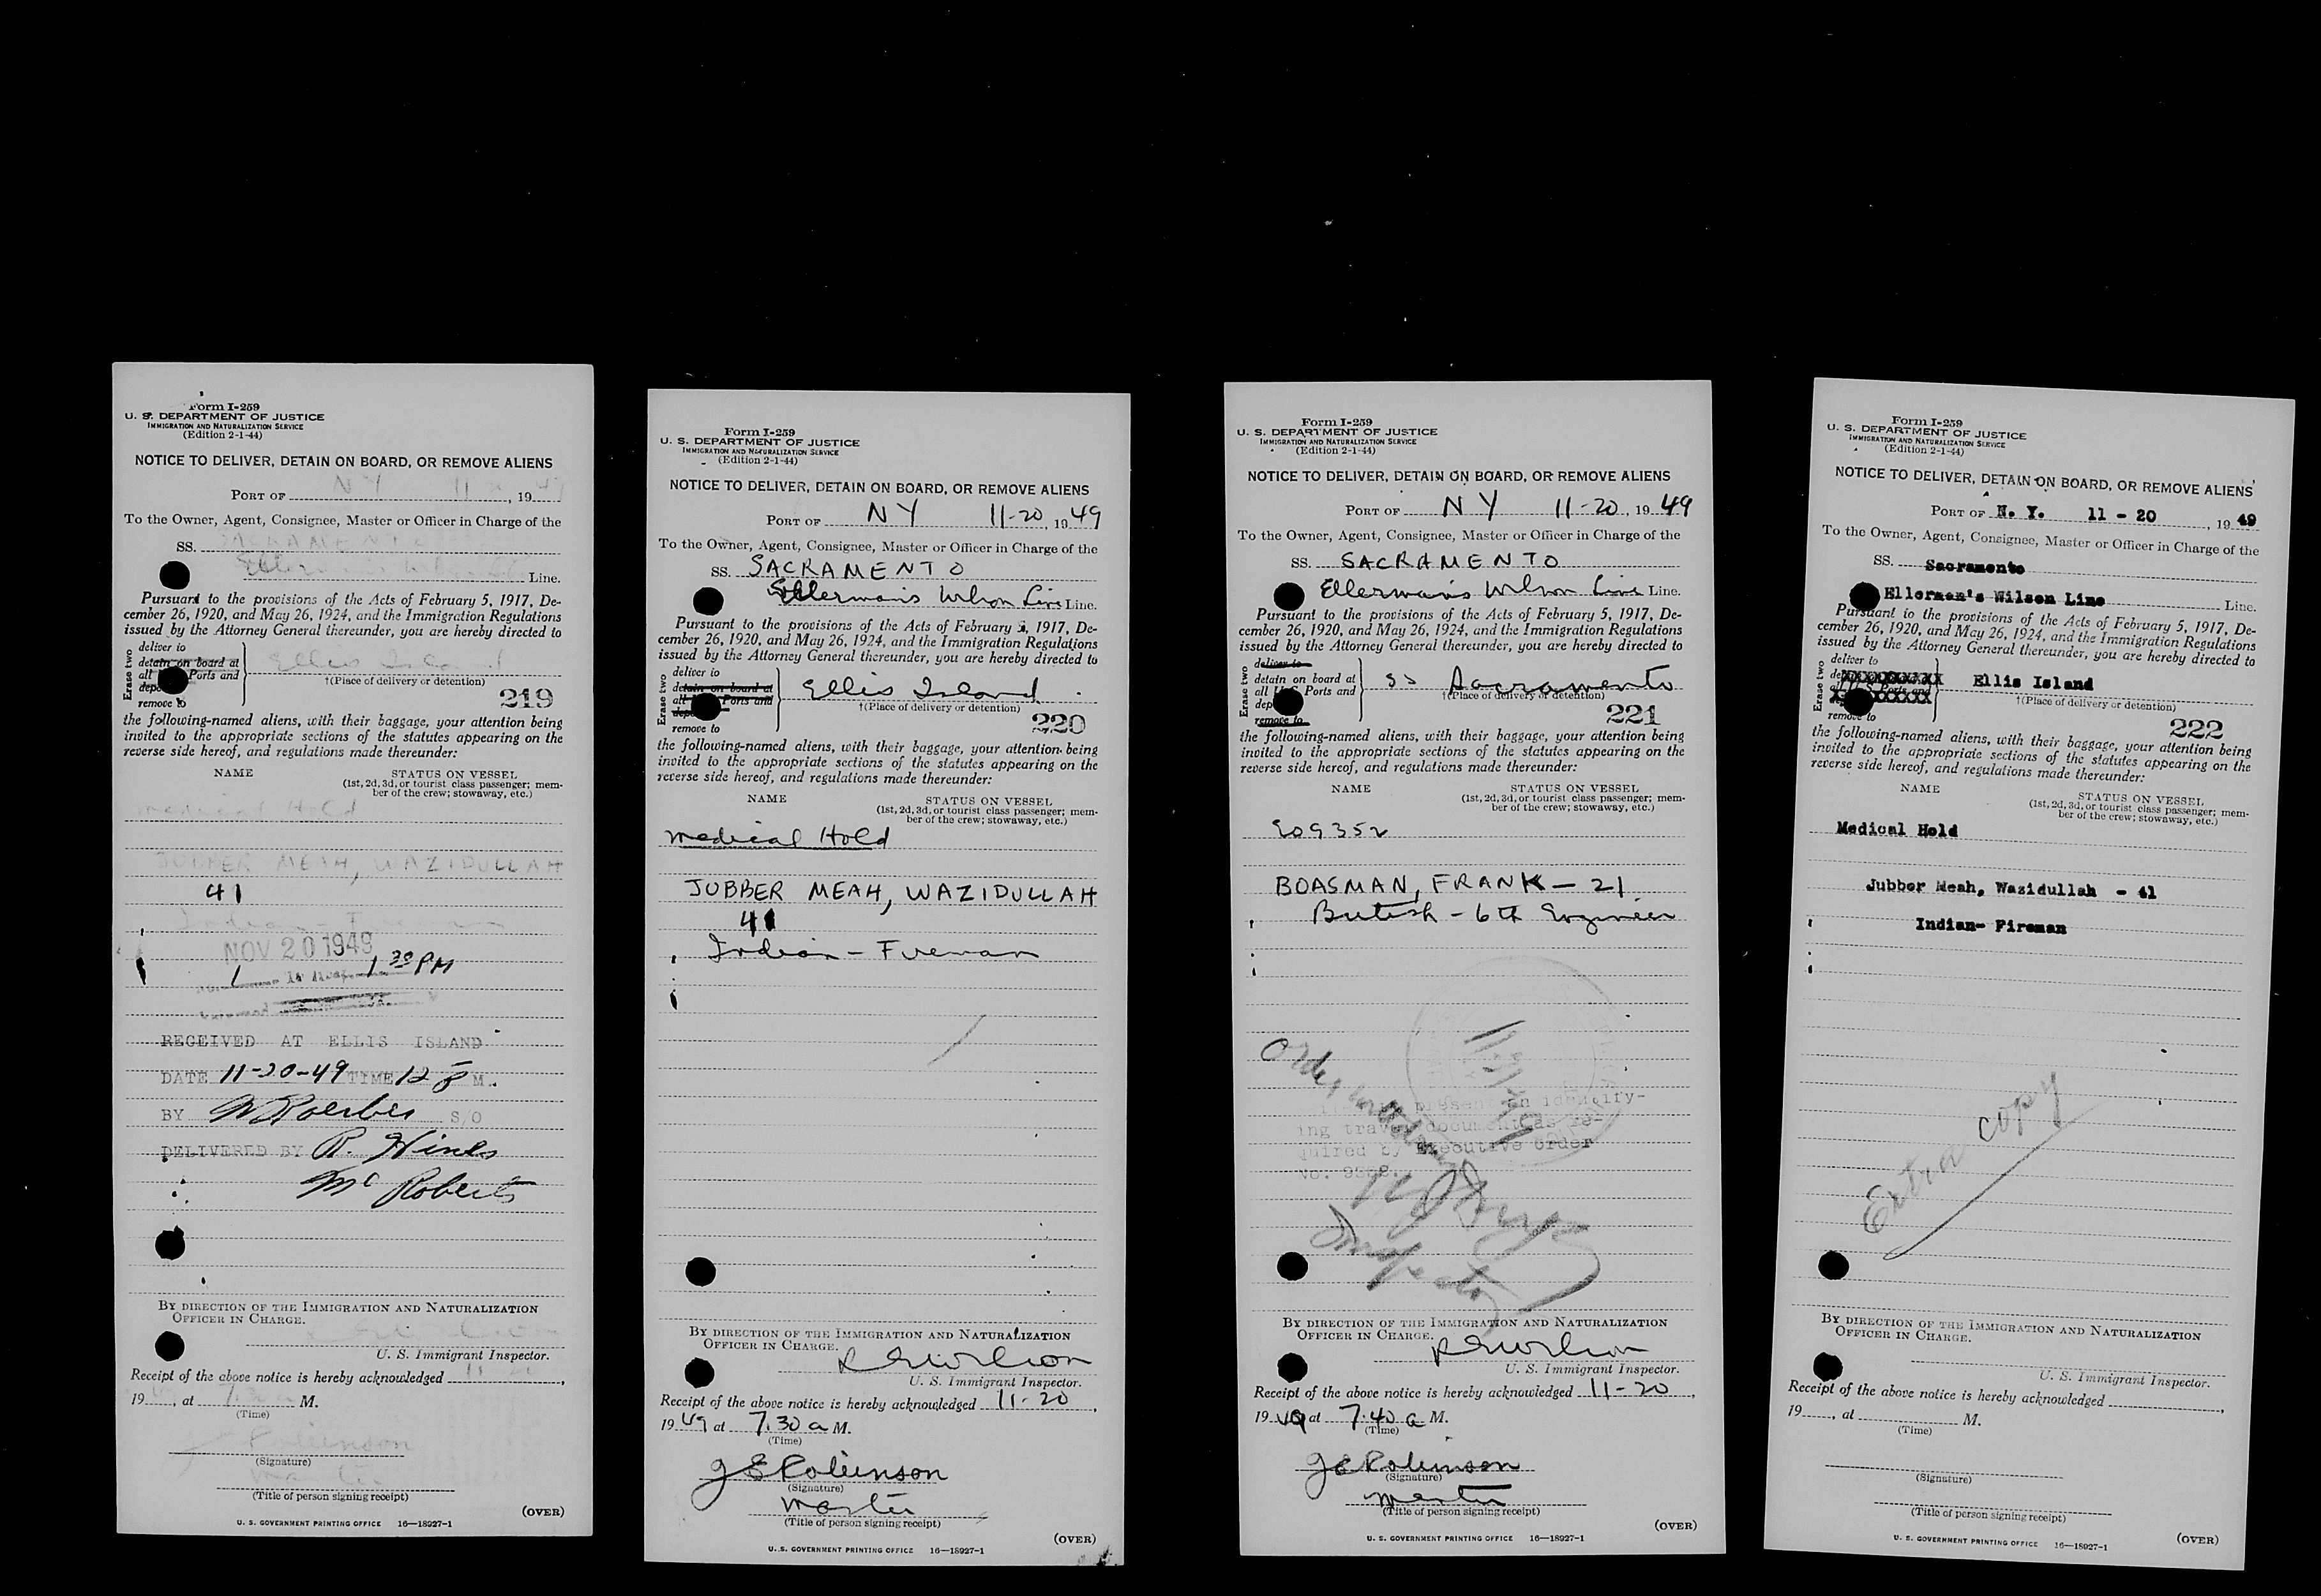 Form I-259
U. S. DEPARTMENT OF JUSTICE
IMMIGRATION AND NATURALIZATION SERVICE
(Edition 2-1-44)
NOTICE TO DELIVER, DETAIN ON BOARD, OR REMOVE ALIENS
PORT OF N Y 11 , 19 49
To the Owner, Agent, Consignee, Master or Officer in Charge of the
SS. SACRAMENTO
Ellerman's Wilson Line.
Pursuant to the provisions of the Acts of February 5, 1917, De-
cember 26, 1920, and May 26, 1924, and the Immigration Regulations
issued by the Attorney General thereunder, you are hereby directed to
Erase two
deliver to
detain on board at
all Ports and
remove to
Ellis Island
†(Place of delivery or detention)
219
the following-named aliens, with their baggage, your attention being
invited to the appropriate sections of the statutes appearing on the
reverse side hereof, and regulations made thereunder:
NAME STATUS ON VESSEL
(1st, 2d, 3d, or tourist class passenger; mem-
ber of the crew; stowaway, etc.)
medical Hold
JUBBER MEAH, WAZIDULLAH
41
Indian - Fireman
NOV 20 1949
1 1 30 PM
RECEIVED AT ELLIS ISLAND
DATE 11-20-49 TIME 12 M.
BY S/O
DELIVERED BY R. Hines
McRoberts
BY DIRECTION OF THE IMMIGRATION AND NATURALIZATION
OFFICER IN CHARGE.
U. S. Immigrant Inspector.
Receipt of the above notice is hereby acknowledged 11 20,
19, at 7.30 a M.
(Time)
J E Robinson
(Signature)
Master
(Title of person signing receipt)
(OVER)
U. S. GOVERNMENT PRINTING OFFICE 16—18927-1
Form I-259
U. S. DEPARTMENT OF JUSTICE
IMMIGRATION AND NATURALIZATION SERVICE
(Edition 2-1-44)
NOTICE TO DELIVER, DETAIN ON BOARD, OR REMOVE ALIENS
PORT OF N Y 11-20, 19 49
To the Owner, Agent, Consignee, Master or Officer in Charge of the
SS. SACRAMENTO
Ellerman's Wilson Line Line.
Pursuant to the provisions of the Acts of February 5, 1917, De-
cember 26, 1920, and May 26, 1924, and the Immigration Regulations
issued by the Attorney General thereunder, you are hereby directed to
Erase two
deliver to
detain on board at
all Ports and
remove to
Ellis Island
†(Place of delivery or detention)
220
the following-named aliens, with their baggage, your attention being
invited to the appropriate sections of the statutes appearing on the
reverse side hereof, and regulations made thereunder:
NAME STATUS ON VESSEL
(1st, 2d, 3d, or tourist class passenger; mem-
ber of the crew; stowaway, etc.)
medical Hold
JUBBER MEAH, WAZIDULLAH
41
Indian - Fireman
BY DIRECTION OF THE IMMIGRATION AND NATURALIZATION
OFFICER IN CHARGE.
U. S. Immigrant Inspector.
Receipt of the above notice is hereby acknowledged 11-20,
19 49 at 7.30 a M.
(Time)
J E Robinson
(Signature)
Master
(Title of person signing receipt)
(OVER)
U. S. GOVERNMENT PRINTING OFFICE 16—18927-1
Form I-259
U. S. DEPARTMENT OF JUSTICE
IMMIGRATION AND NATURALIZATION SERVICE
(Edition 2-1-44)
NOTICE TO DELIVER, DETAIN ON BOARD, OR REMOVE ALIENS
PORT OF N Y 11-20, 19 49
To the Owner, Agent, Consignee, Master or Officer in Charge of the
SS. SACRAMENTO
Ellerman's Wilson Line Line.
Pursuant to the provisions of the Acts of February 5, 1917, De-
cember 26, 1920, and May 26, 1924, and the Immigration Regulations
issued by the Attorney General thereunder, you are hereby directed to
Erase two
deliver to
detain on board at
all Ports and
remove to
SS Sacramento
†(Place of delivery or detention)
221
the following-named aliens, with their baggage, your attention being
invited to the appropriate sections of the statutes appearing on the
reverse side hereof, and regulations made thereunder:
NAME STATUS ON VESSEL
(1st, 2d, 3d, or tourist class passenger; mem-
ber of the crew; stowaway, etc.)
E09352
BOASMAN, FRANK - 21
British - 6th Engineer
Order
present an identify-
ing travel document as re-
quired by Executive Order
No.
Inspector
BY DIRECTION OF THE IMMIGRATION AND NATURALIZATION
OFFICER IN CHARGE.
U. S. Immigrant Inspector.
Receipt of the above notice is hereby acknowledged 11-20,
19 49 at 7.40 a M.
(Time)
J E Robinson
(Signature)
Master
(Title of person signing receipt)
(OVER)
U. S. GOVERNMENT PRINTING OFFICE 16—18927-1
Form I-259
U. S. DEPARTMENT OF JUSTICE
IMMIGRATION AND NATURALIZATION SERVICE
(Edition 2-1-44)
NOTICE TO DELIVER, DETAIN ON BOARD, OR REMOVE ALIENS
PORT OF N. Y. 11 - 20, 19 49
To the Owner, Agent, Consignee, Master or Officer in Charge of the
SS. Sacramento
Ellerman's Wilson Line Line.
Pursuant to the provisions of the Acts of February 5, 1917, De-
cember 26, 1920, and May 26, 1924, and the Immigration Regulations
issued by the Attorney General thereunder, you are hereby directed to
Erase two
deliver to
remove to
Ellis Island
†(Place of delivery or detention)
222
the following-named aliens, with their baggage, your attention being
invited to the appropriate sections of the statutes appearing on the
reverse side hereof, and regulations made thereunder:
NAME STATUS ON VESSEL
(1st, 2d, 3d, or tourist class passenger; mem-
ber of the crew; stowaway, etc.)
Medical Hold
Jubber Meah, Wazidullah - 41
Indian- Fireman
Extra copy
BY DIRECTION OF THE IMMIGRATION AND NATURALIZATION
OFFICER IN CHARGE.
U. S. Immigrant Inspector.
Receipt of the above notice is hereby acknowledged,
19, at M.
(Time)
(Signature)
(Title of person signing receipt)
(OVER)
U. S. GOVERNMENT PRINTING OFFICE 16—18927-1